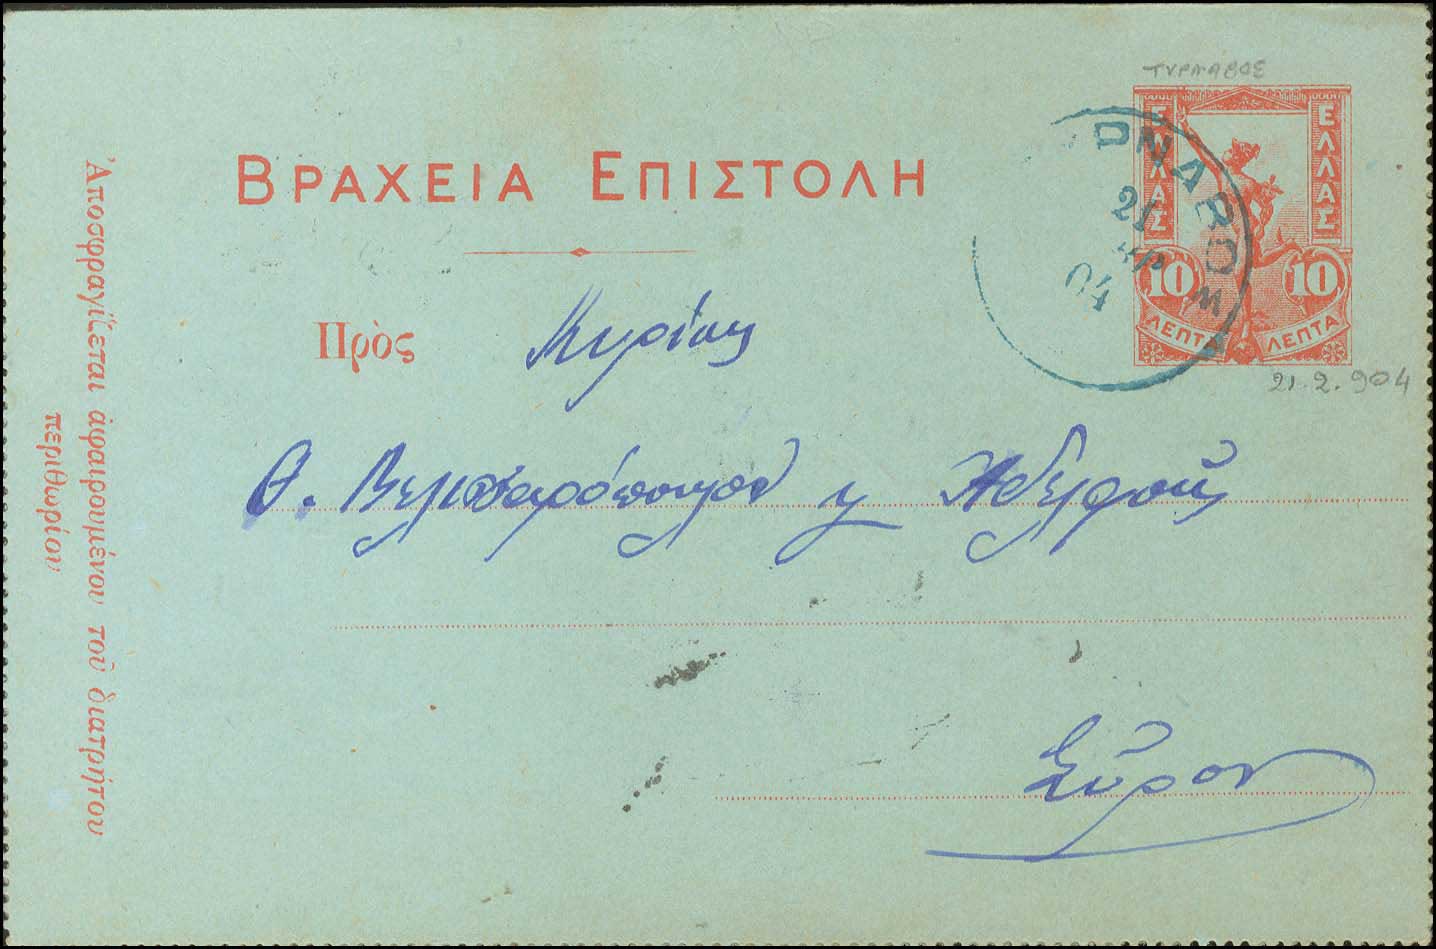 ΤΥΡΝΑΒΟΣ
ΒΡΑΧΕΙΑ ΕΠΙΣΤΟΛΗ
ΕΛΛΑΣ
ΕΛΛΑΣ
10
10
ΛΕΠΤΑ
ΛΕΠΤΑ
ΡΝΑΒΟΣ
21
04
21.2.904
Πρὸς
Κυρίους
Θ.
Ἀδελφοὺς
Σῦρον
Ἀποσφραγίζεται ἀφαιρουμένου τοῦ διατρήτου
περιθωρίου